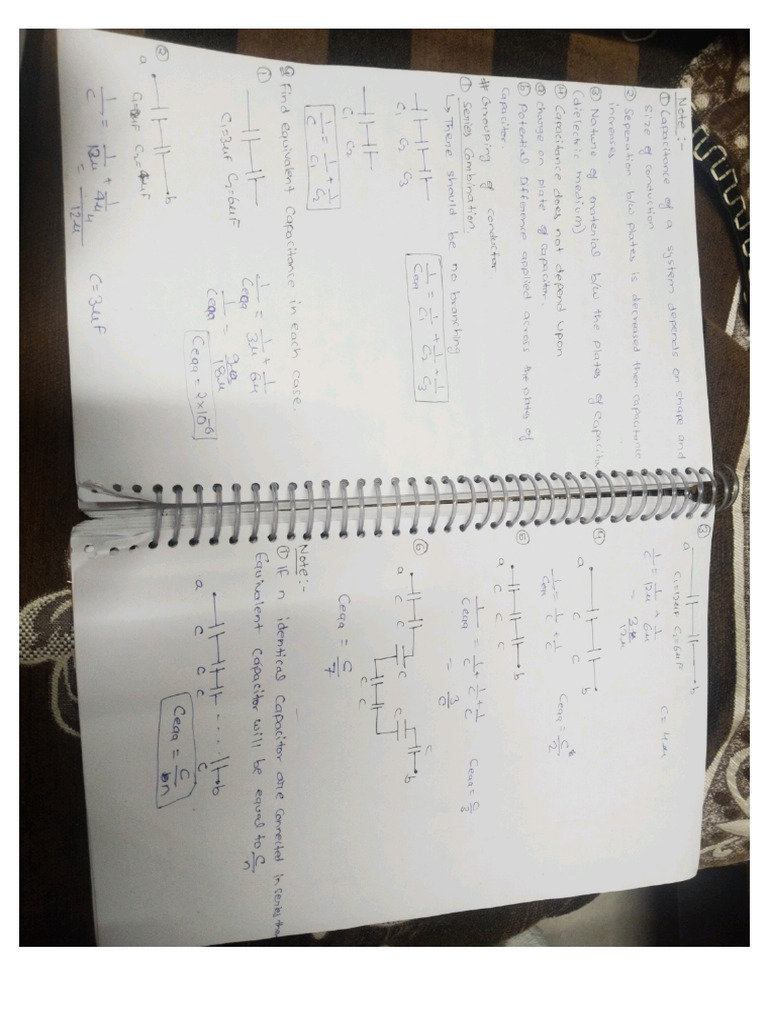 Note :-
① Capacitance of a system depends on shape and
size of conduction
② Seperation b/w plates is decreased then capacitance
increases.
③ Nature of material b/w the plates of capacito
(dielectric medium)
④ Capacitance does not depend upon
⑤ charge on plate of capacitor.
⑥ Potential Difference applied across the plates of
capacitor.
# Grouping of conductor
① Series Combination:
↳ There should be no branching
C₁ C₂ C₃
1/Ceqq = 1/C₁ + 1/C₂ + 1/C₃
C₁ C₂
1/C = 1/C₁ + 1/C₂
Q Find equivalent capacitance in each case.
①
C₁=3μF C₂=6μF
1/Ceqq = 1/3μ + 1/6μ
1/Ceqq = /18μ
Ceqq = 2×10⁻⁶
②
a b
C₂=4μF
1/C = 1/12μ + 1/4μ
= 4/12μ
C=3μF
③
a b
C₁=12μF C₂=6μF
1/C = 1/12μ + 1/6μ
= 3/12μ
C=4μ
④
a b
C C
1/Ceq = 1/C + 1/C
Ceqq = C/2
⑤
a b
C C C
1/Ceqq = 1/C + 1/C + 1/C
= 3/C
Ceqq = C/3
⑥
a b
C C C C C C C
Ceqq = C/7
Note :-
① If n identical capacitor are connected in series the
Equivalent capacitor will be equal to C/n
a b
C C C C
Ceqq = C/n